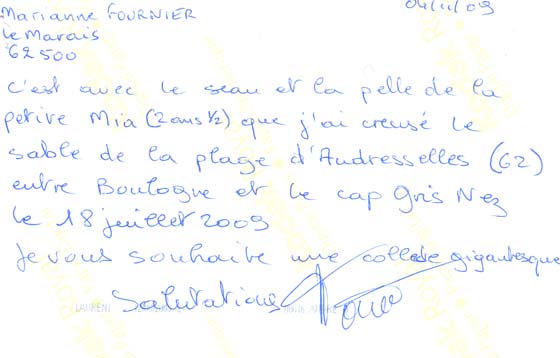 Marianne FOURNIER
04/11/09
le Marais
62500
c'est avec le seau et la pelle de la
petite Mia (2 ans 1/2) que j'ai creusé le
sable de la plage d'Audresselles (62)
entre Boulogne et le cap Gris Nez
le 18 juillet 2009
Je vous souhaite une collecte gigantesque
Salutations
LAURENT